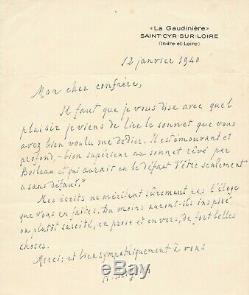 «La Gaudinière»
SAINT-CYR-SUR-LOIRE
(Indre et Loire)
12 janvier 1940
Mon cher confrère,
Il faut que je vous dise avec quel
plaisir je viens de lire le sonnet que vous
avez bien voulu me dédier. Il est émouvant et
profond, — bien supérieur au sonnet rêvé par
Boileau et qui aurait eu le défaut d'être seulement
« sans défaut. »
Mes écrits ne méritent sûrement pas l'éloge
que vous en faites. Du moins auront-ils inspiré
ou plutôt suscité, en prose et en vers, de fort belles
choses.
Merci, et bien sympathiquement à vous